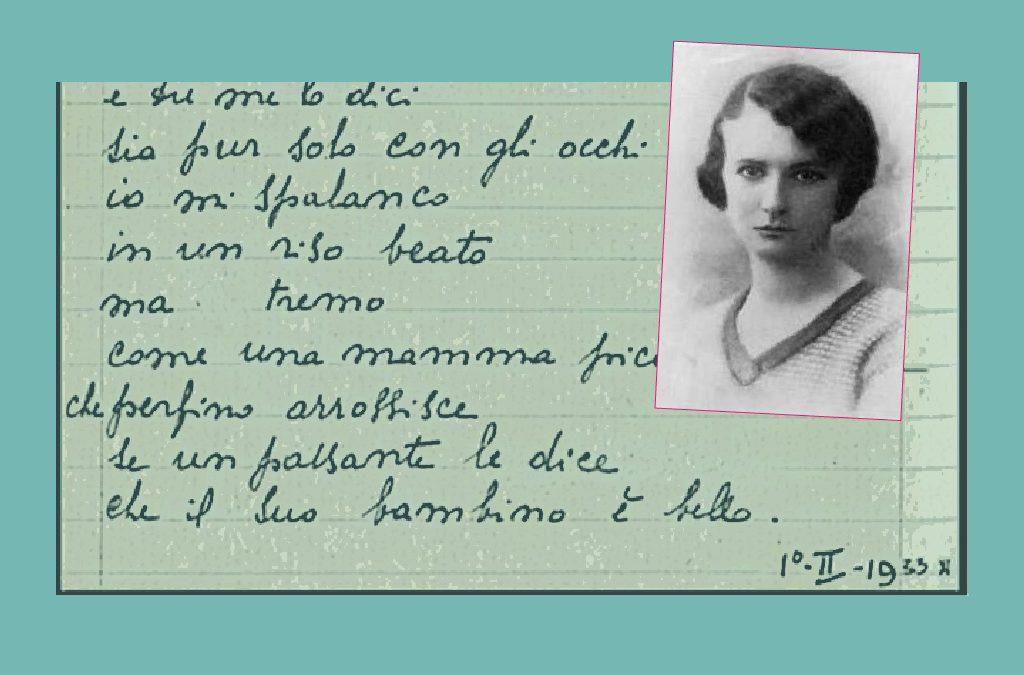 e tu me lo dici
sia pur solo con gli occhi
io mi spalanco
in un riso beato
ma tremo
come una mamma
che perfino arrossisce
se un passante le dice
che il suo bambino è bello.
1º-II-1933